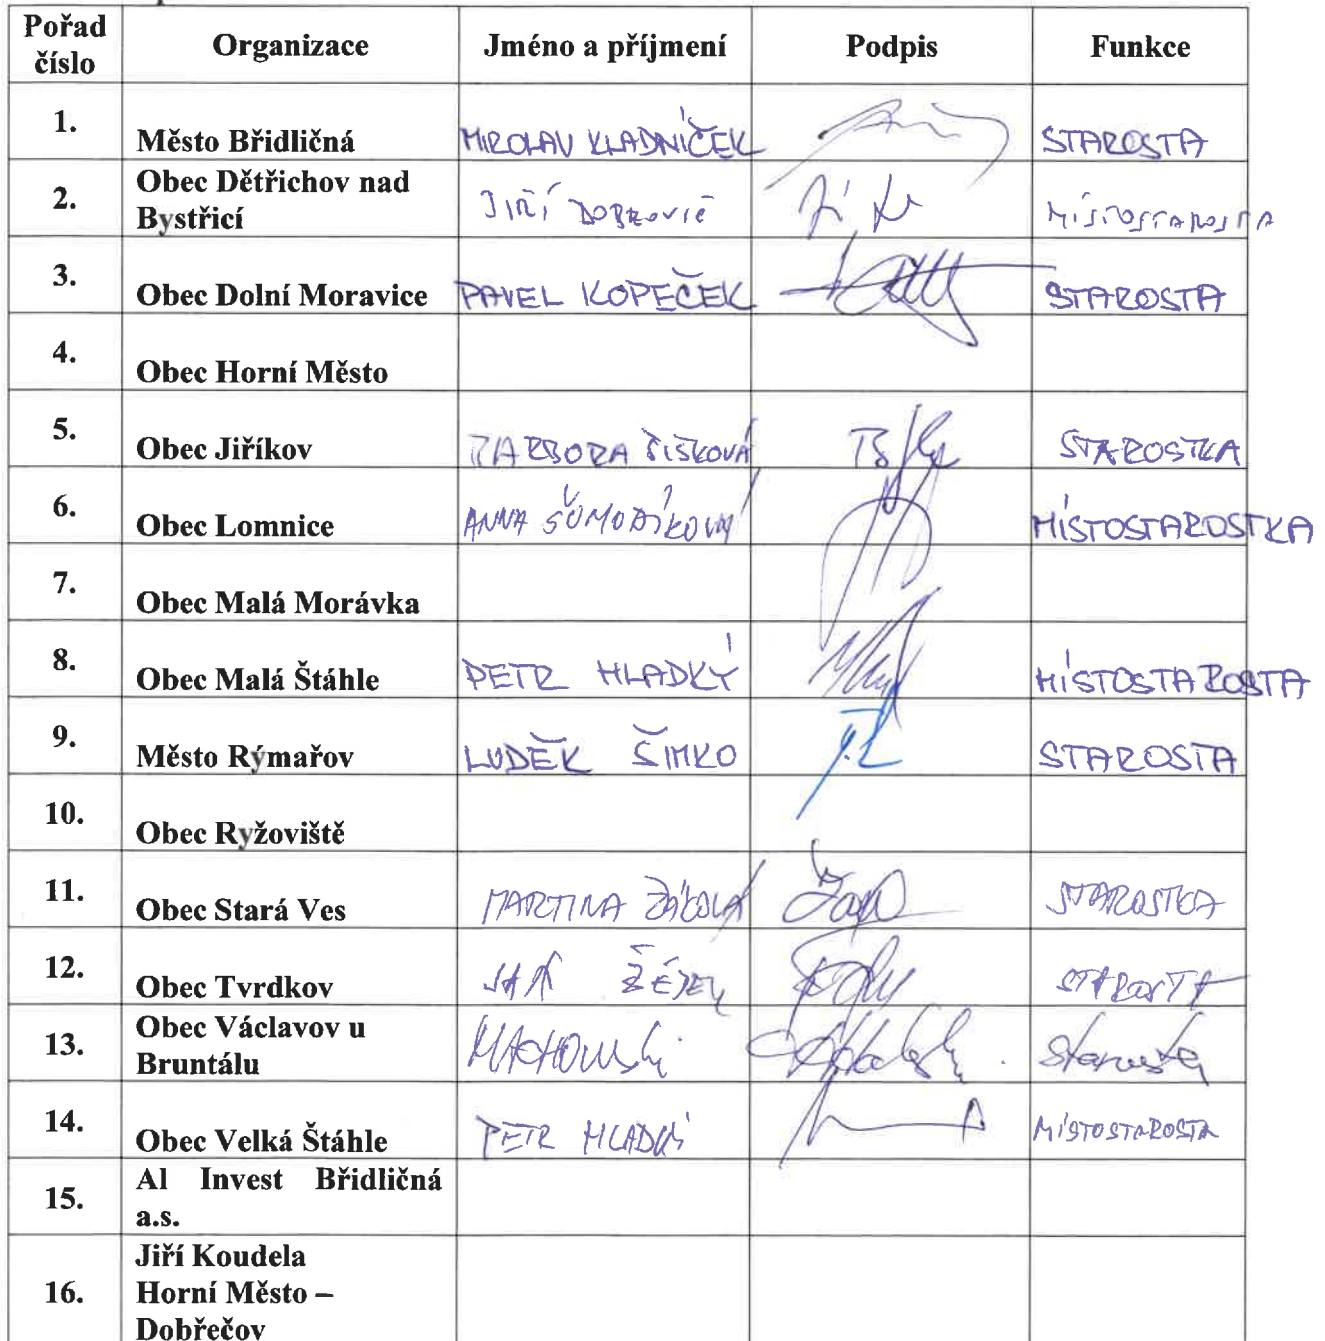 Pořad číslo Organizace Jméno a příjmení Podpis Funkce
1. Město Břidličná MIROLAV KLADNÍČEK STAROSTA
2. Obec Dětřichov nad Bystřicí JIŘÍ MÍSTOSTAROSTA
3. Obec Dolní Moravice PAVEL KOPEČEK STAROSTA
4. Obec Horní Město
5. Obec Jiříkov BARBORA ŠIŠKOVÁ STAROSTKA
6. Obec Lomnice ANNA MÍSTOSTAROSTKA
7. Obec Malá Morávka
8. Obec Malá Štáhle PETR HLADKÝ MÍSTOSTAROSTA
9. Město Rýmařov LUDĚK ŠIMKO STAROSTA
10. Obec Ryžoviště
11. Obec Stará Ves MARTINA ŽÁKOVÁ STAROSTKA
12. Obec Tvrdkov STAROSTA
13. Obec Václavov u Bruntálu starosta
14. Obec Velká Štáhle PETR HLADKÝ MÍSTOSTAROSTA
15. Al Invest Břidličná a.s.
16. Jiří Koudela Horní Město – Dobřečov